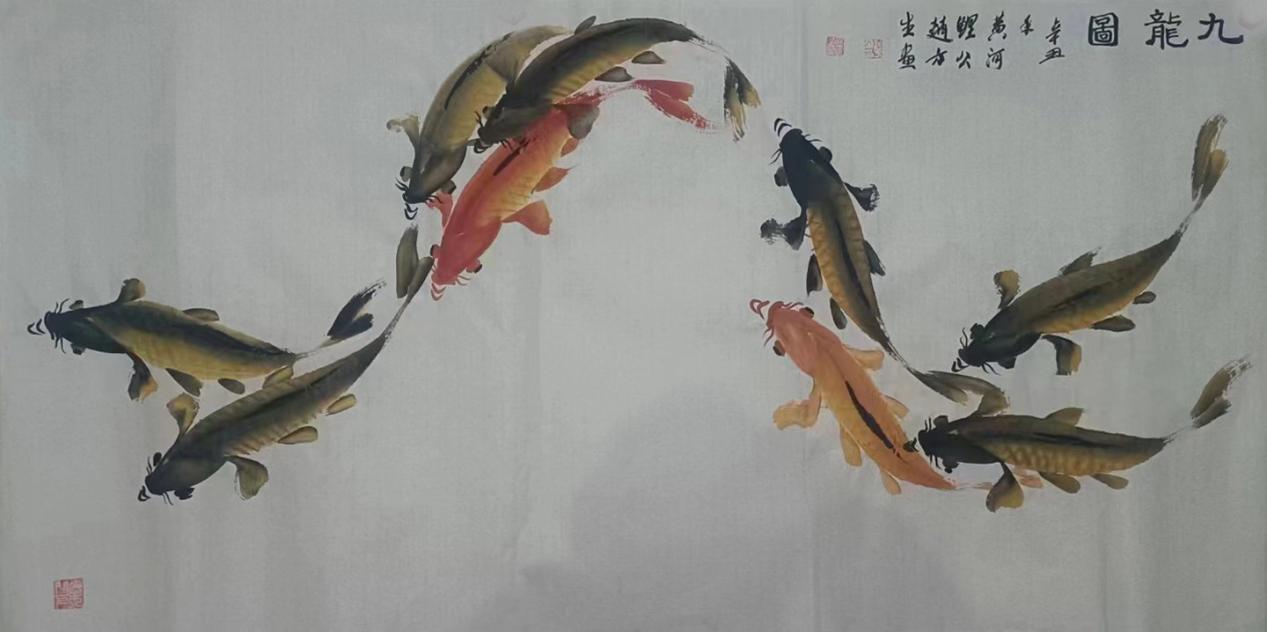 九龍圖
辛丑
年
黄河
鯉公
趙方
生畫